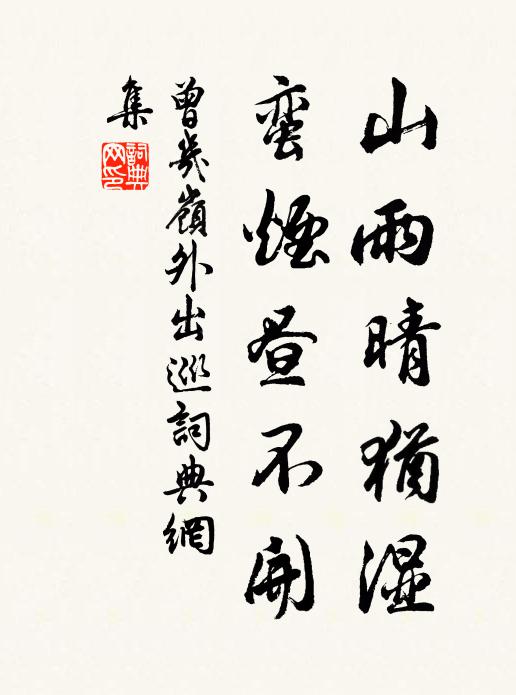 山雨晴猶湿
蛮煙昼不開
曾幾嶺外出巡詞典網
集
詞典
网印